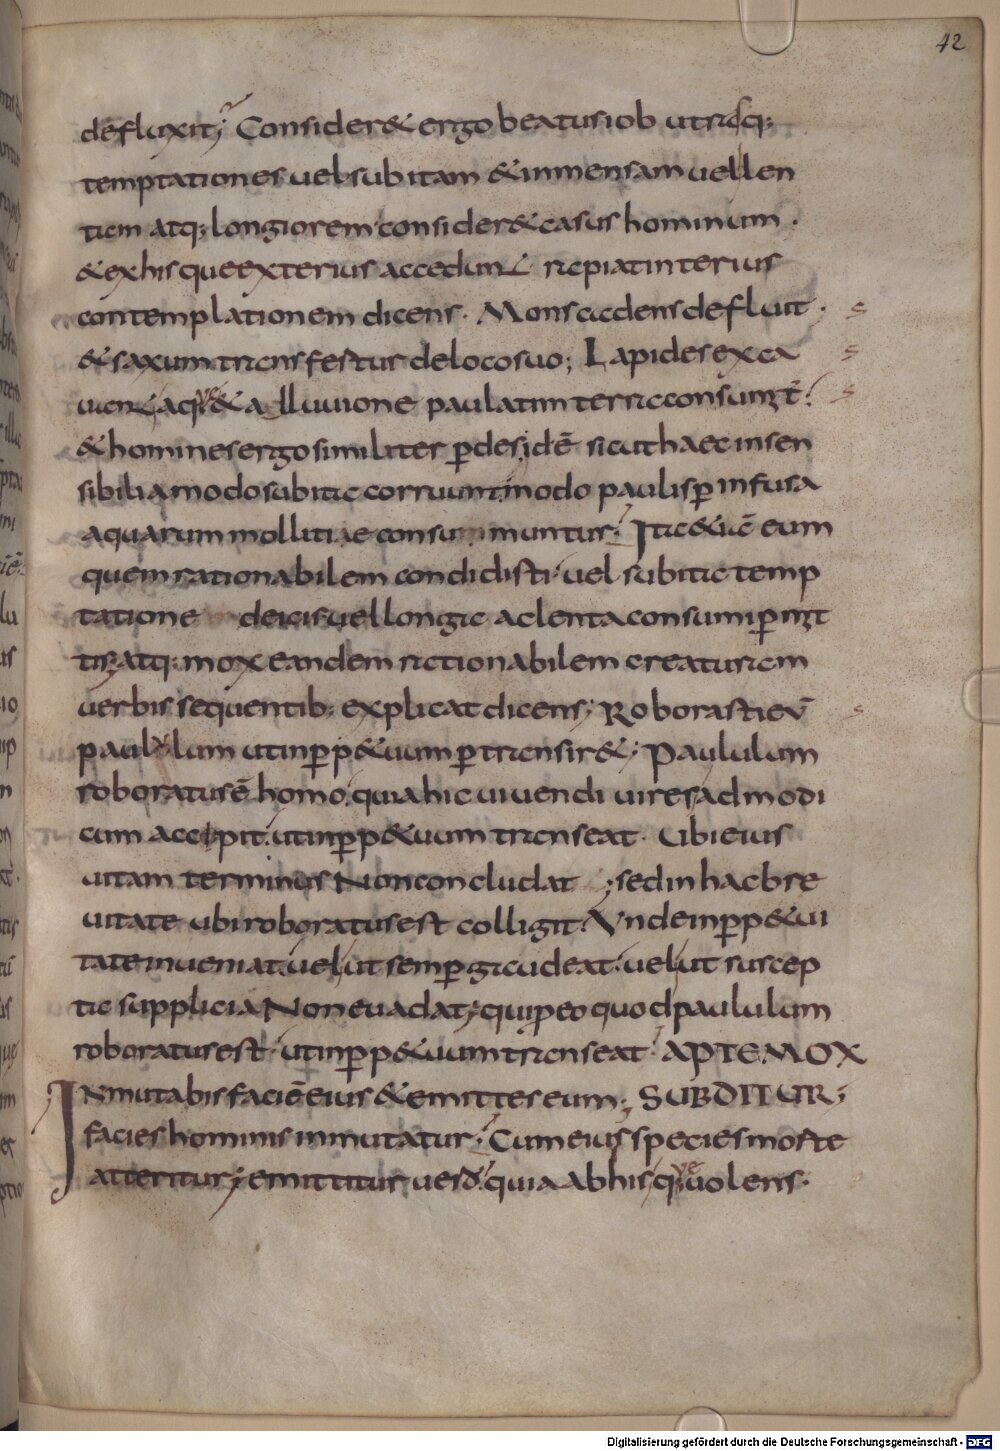 42
defluxit; Consider& ergo beatus iob utrasq;
temptationes uel subitam & inmensam uel len
tam atq; longiorem consider& casus hominum .
& ex his que exterius accedunt rapiat interius
contemplationem dicens . Mons cadens defluit .
& saxum transfertur de loco suo; Lapides exca
uant aque & alluuione paulatim terra consumit̄.
& homines ergo similiter p̄ desidē sicut haec insen
sibilia modo subita corruunt. modo paulisp̄ infusa
aquarum mollitiae consummuntur; Ita & uē eum
quem rationabilem condidisti. uel subita temp
tatione deicis uel longa ac lenta consumi p̄mit
tis; atq; mox eandem rationabilem creaturam
uerbis sequentib; explicat dicens; Roborasti eū
paululum ut inp̄p&uum p̄transir&; Paululum
roboratus ē homo. quia hic uiuendi uires ad modi
cum accepit. ut inp̄p&uum transeat . Ubi eius
uitam terminus Non concludat ; sed in hac bre
uitate ubi roboratus est colligit. Vnde inp̄p&ui
tate inueniat. uel ut semp̄ gaudeat. uel ut suscep
ta supplicia Non euadat; qui p̄ eo quod paululum
roboratus est . ut inp̄p&uum transeat . APTE MOX
SUBDITUR;
INmutabis faciē eius & emittes eum;
facies hominis inmutatur. Cum eius species morte
atteritur; emittitur uero. quia ab his que uolens .
Digitalisierung gefördert durch die Deutsche Forschungsgemeinschaft - DFG